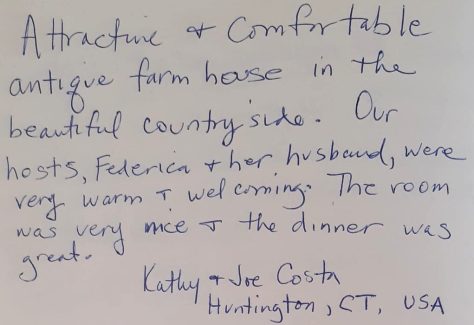 Attractive & Comfortable
antique farm house in the
beautiful country side. Our
hosts, Federica & her husband, were
very warm & welcoming. The room
was very nice & the dinner was
great.
Kathy & Joe Costa
Huntington, CT, USA